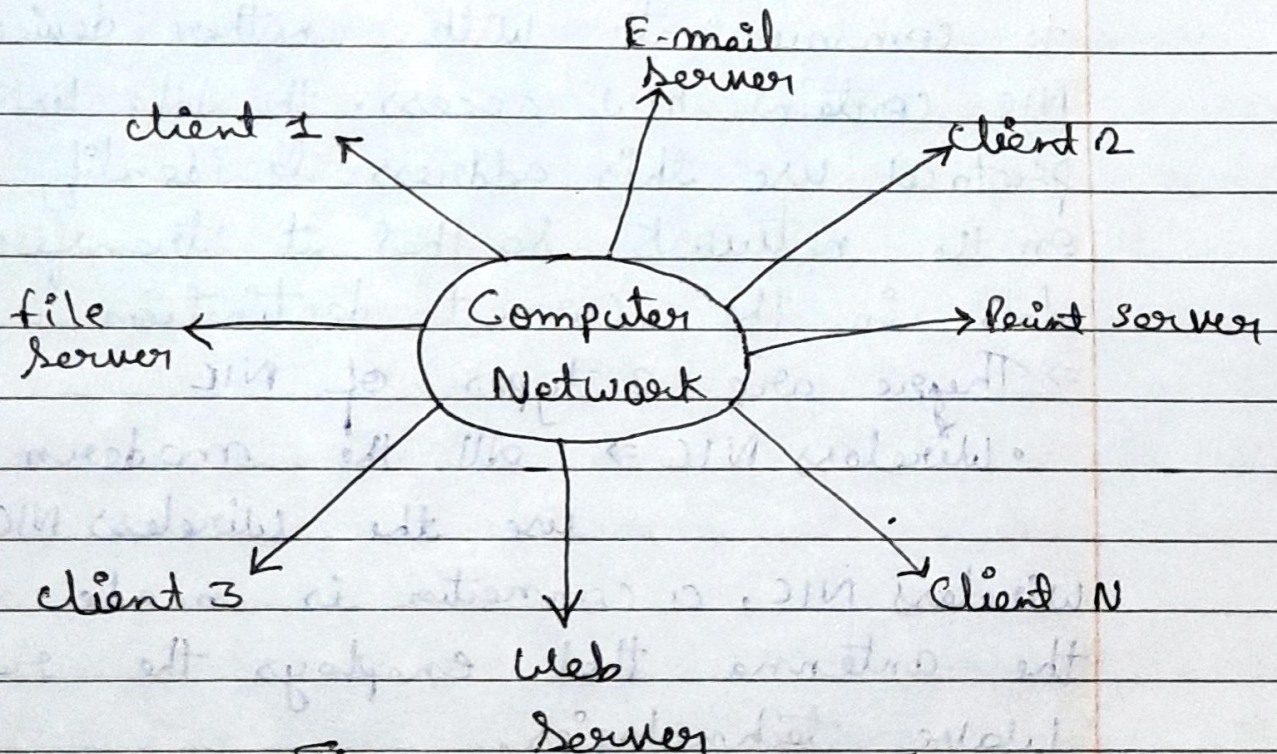 E-mail
server
client 1
Client 2
file
server
Computer
Network
Print server
client 3
Client N
Web
Server